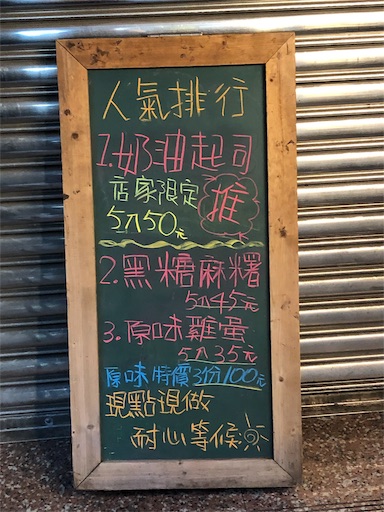 人氣排行
1.奶油起司
店家限定 推
5入50元
2.黑糖麻糬
5入45元
3.原味雞蛋
5入35元
原味特價3份100元
現點現做
耐心等候